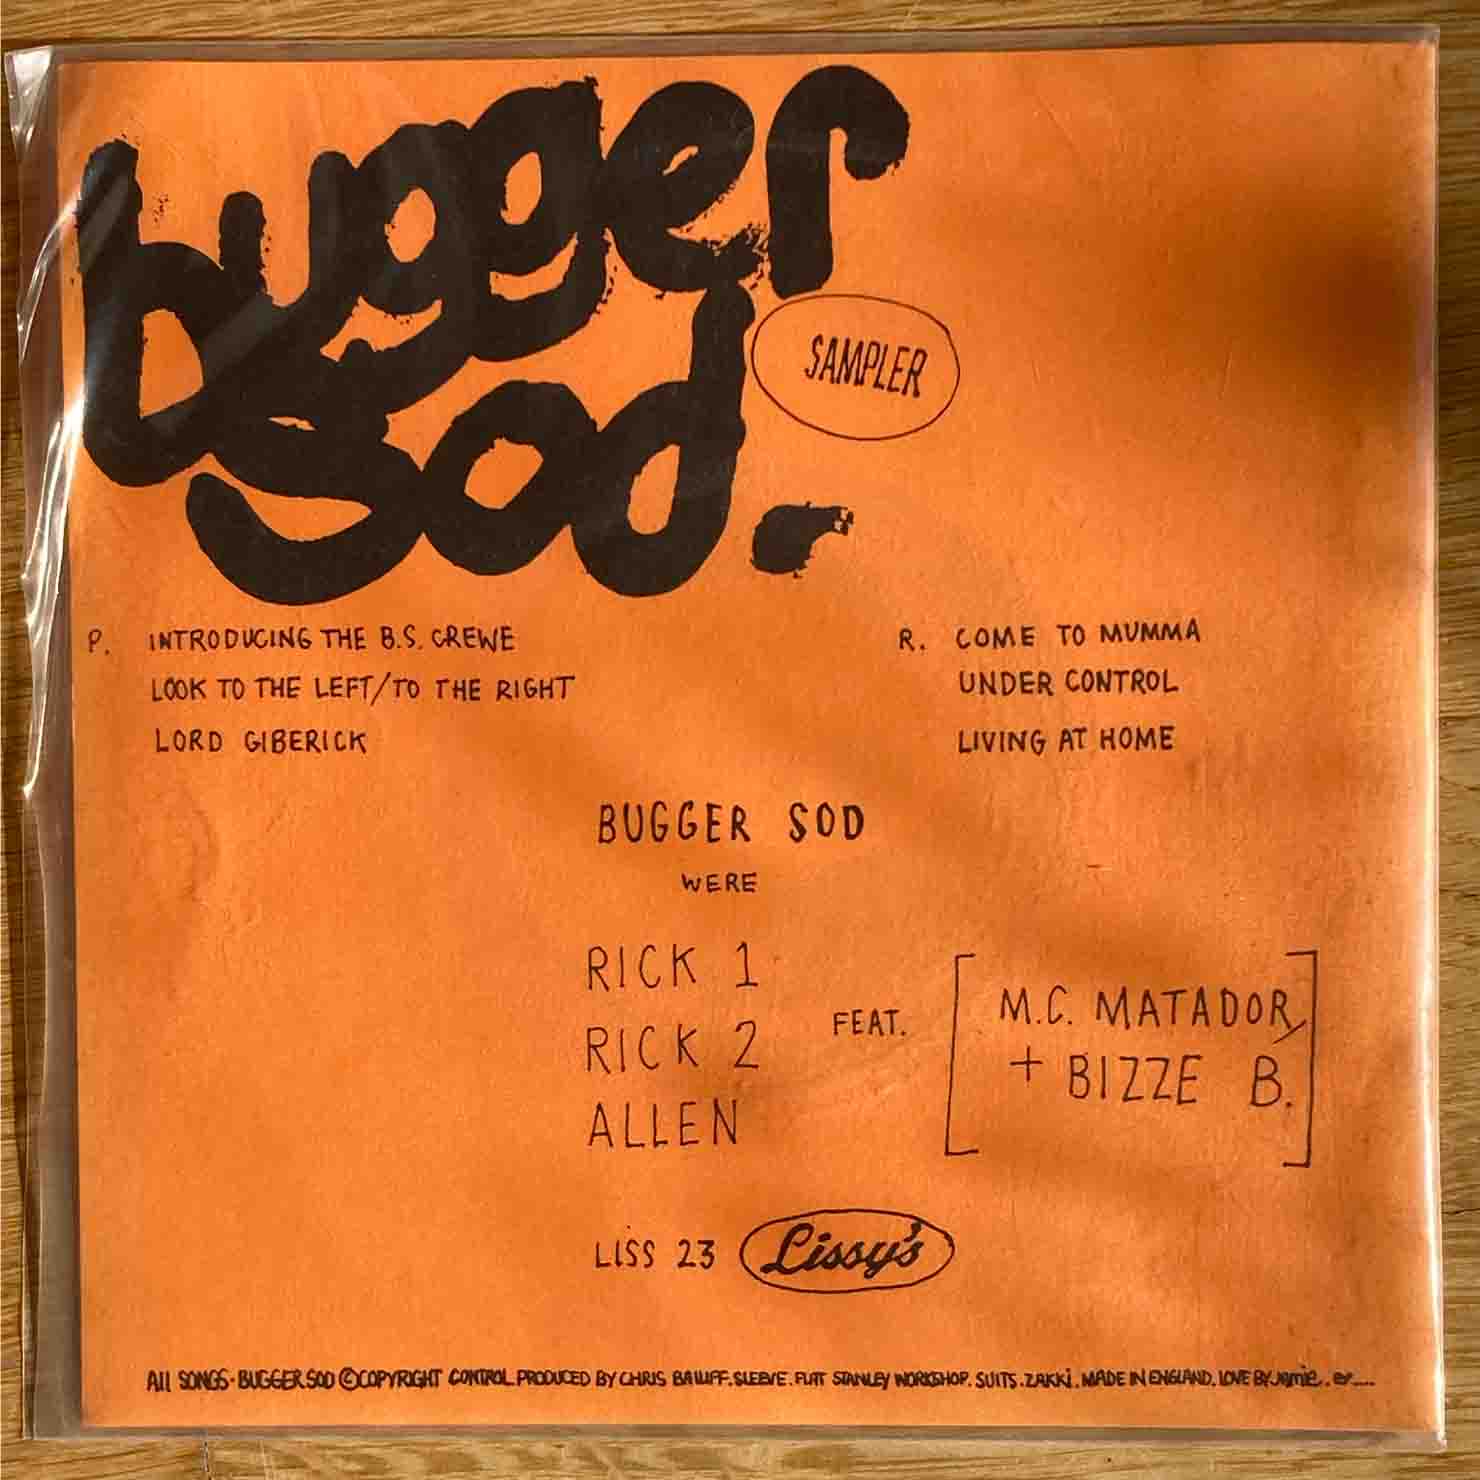 bugger
sod.
SAMPLER
P. INTRODUCING THE B.S. CREWE
LOOK TO THE LEFT/TO THE RIGHT
LORD GIBERICK
R. COME TO MUMMA
UNDER CONTROL
LIVING AT HOME
BUGGER SOD
WERE
RICK 1
RICK 2
ALLEN
FEAT.
M.C. MATADOR
+ BIZZE B.
LISS 23 Lissy's
All SONGS · BUGGER SOD ©COPYRIGHT CONTROL. PRODUCED BY CHRIS BAILIFF. SLEEVE. FLAT STANLEY WORKSHOP. SUITS. ZAKKi. MADE IN ENGLAND. LOVE BY Jamie. er.....